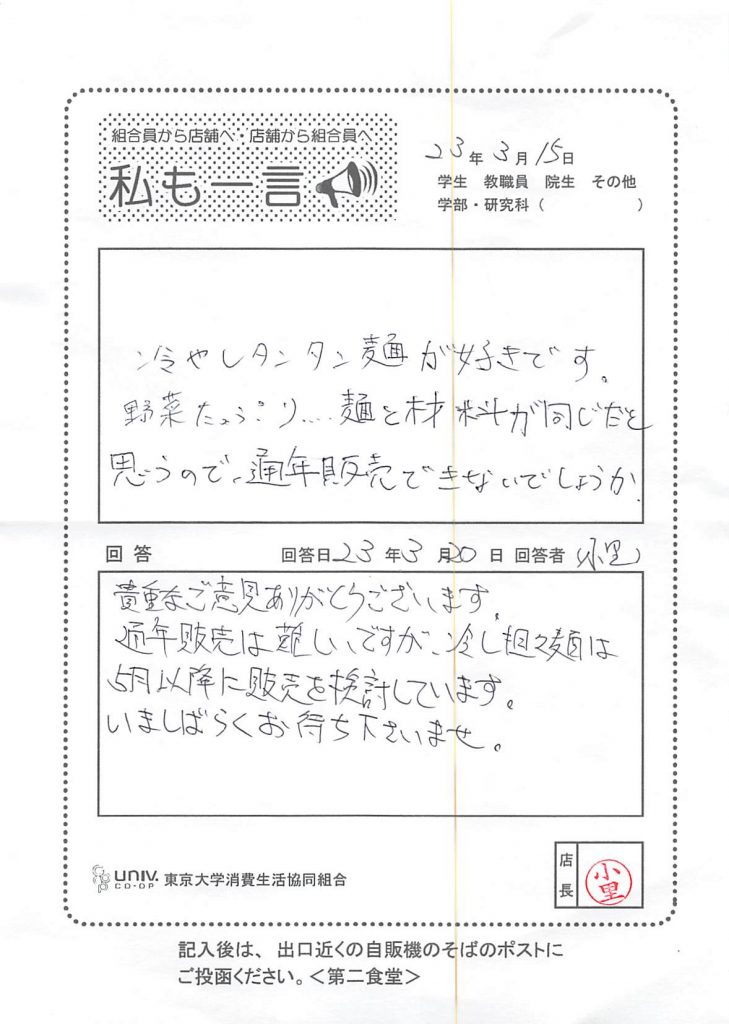 組合員から店舗へ・店舗から組合員へ
私も一言
23年3月15日
学生 教職員 院生 その他
学部・研究科( )
冷やしタンタン麺が好きです。
野菜たっぷり…麺と材料が同じだと
思うので、通年販売できないでしょうか。
回答 回答日23年3月20日 回答者 小里
貴重なご意見ありがとうございます。
通年販売は難しいですが、冷し担々麺は
5月以降に販売を検討しています。
いましばらくお待ち下さいませ。
UNIV. CO-OP 東京大学消費生活協同組合
店長 小里
記入後は、出口近くの自販機のそばのポストに
ご投函ください。<第二食堂>